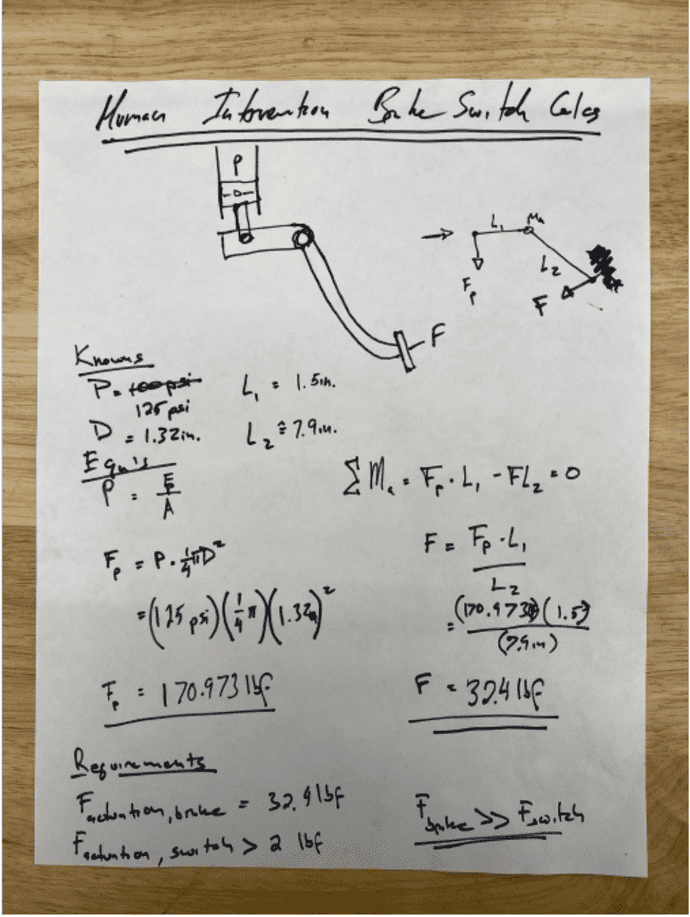 Human Intervention Brake Switch Calcs
P
D
F
L₁ Mₐ
L₂
Fₚ
F
Knowns
P = 100 psi
125 psi
L₁ = 1.5in.
D = 1.32in.
L₂ = 7.9in.
Equ's
P = F/A
∑Mₐ = Fₚ · L₁ - FL₂ = 0
Fₚ = P · ¼πD²
F = Fₚ · L₁ / L₂
= (125 psi)(¼π)(1.32in)²
= (170.973)(1.5) / (7.9in)
Fₚ = 170.973 lbf
F = 32.4 lbf
Requirements
F actuation, brake = 32.4 lbf
F actuation, switch > 2 lbf
F brake >> F switch